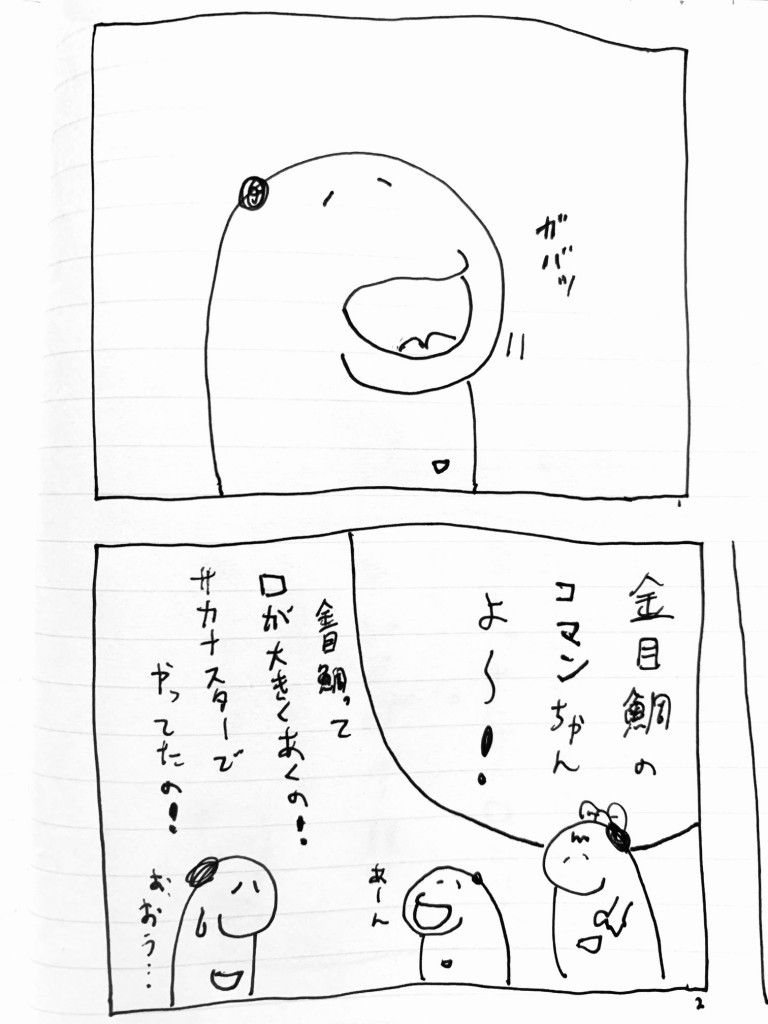 ガバッ
1
金目鯛の
コマンちゃん
よ〜!
金目鯛って
口が大きくあくの!
サカナスターで
やってたの!
あーん
お、おう…
2